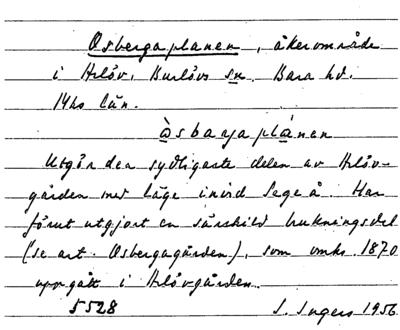 Osbergaplanen, åkerområde
i Arlöv, Burlövs sn. Bara hd.
Mhs län.
àsbarjaplánen
Utgör den sydligaste delen av Arlöv-
gården med läge invid Segeå. Har
förut utgjort en särskild brukningsdel
(se art. Osbergagården), som omkr. 1870
uppgått i Arlövgården.
5528 S. Ingers 1956